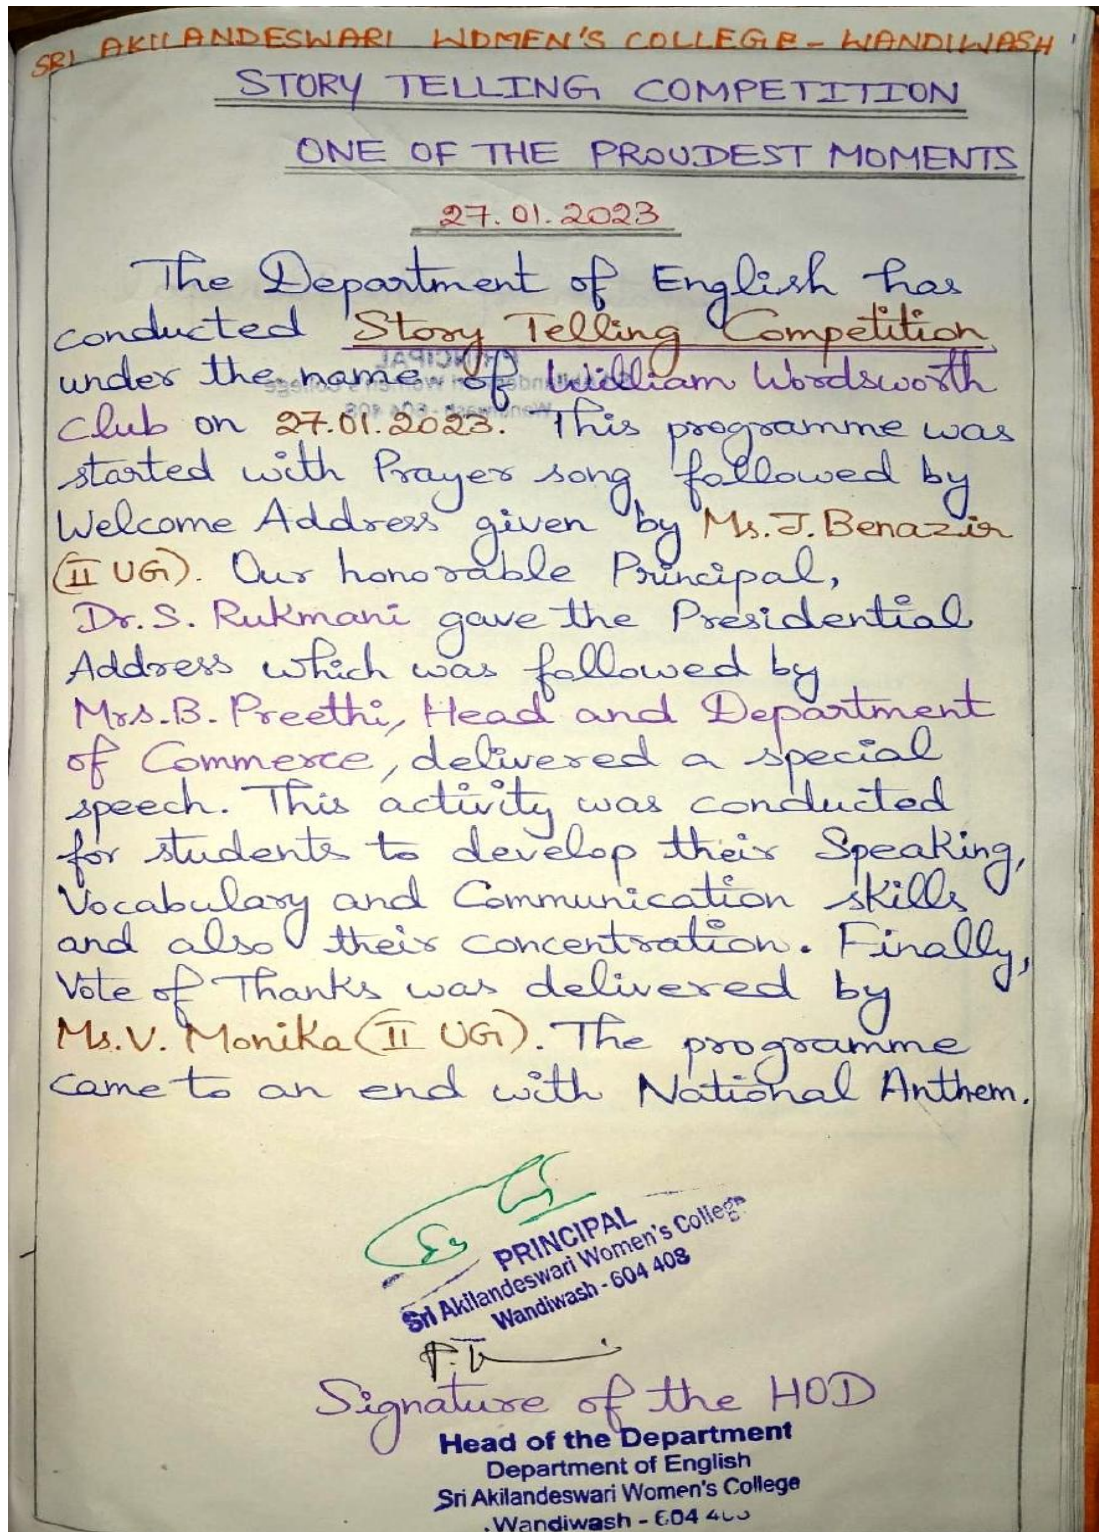 SRI AKILANDESWARI WOMEN'S COLLEGE - WANDIWASH
STORY TELLING COMPETITION
ONE OF THE PROUDEST MOMENTS
27.01.2023
The Department of English has
conducted Story Telling Competition
under the name of William Wordsworth
Club on 27.01.2023. This programme was
started with Prayer song followed by
Welcome Address given by Ms.J.Benazir
(II UG). Our honorable Principal,
Dr.S. Rukmani gave the Presidential
Address which was followed by
Mrs.B.Preethi, Head and Department
of Commerce, delivered a special
speech. This activity was conducted
for students to develop their Speaking,
Vocabulary and Communication skills
and also their concentration. Finally,
Vote of Thanks was delivered by
Ms.V. Monika (II UG). The programme
came to an end with National Anthem.
PRINCIPAL
Sri Akilandeswari Women's College
Wandiwash - 604 408
Signature of the HOD
Head of the Department
Department of English
Sri Akilandeswari Women's College
Wandiwash - 604